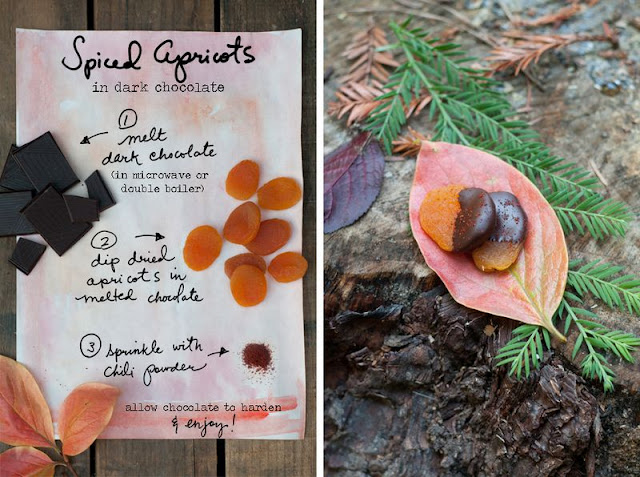 Spiced Apricots
in dark chocolate
1
melt
dark chocolate
(in microwave or
double boiler)
2
dip dried
apricots in
melted chocolate
3 sprinkle with
chili powder
allow chocolate to harden
& enjoy!